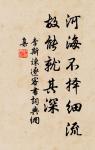 河海不择细流
故能就其深
李斯谏逐客书词典网
集